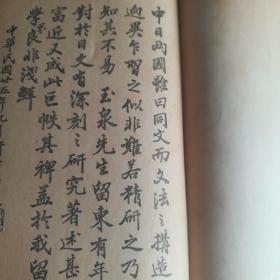 中日两國雖曰同文而文法之構造
迥異乍習之似非難若精研之乃
知其不易玉泉先生留東有年
對於日文有深刻之研究著述甚
富近又成此巨帙其裨益於我留
學界良非淺鮮
中華民國廿五年九月